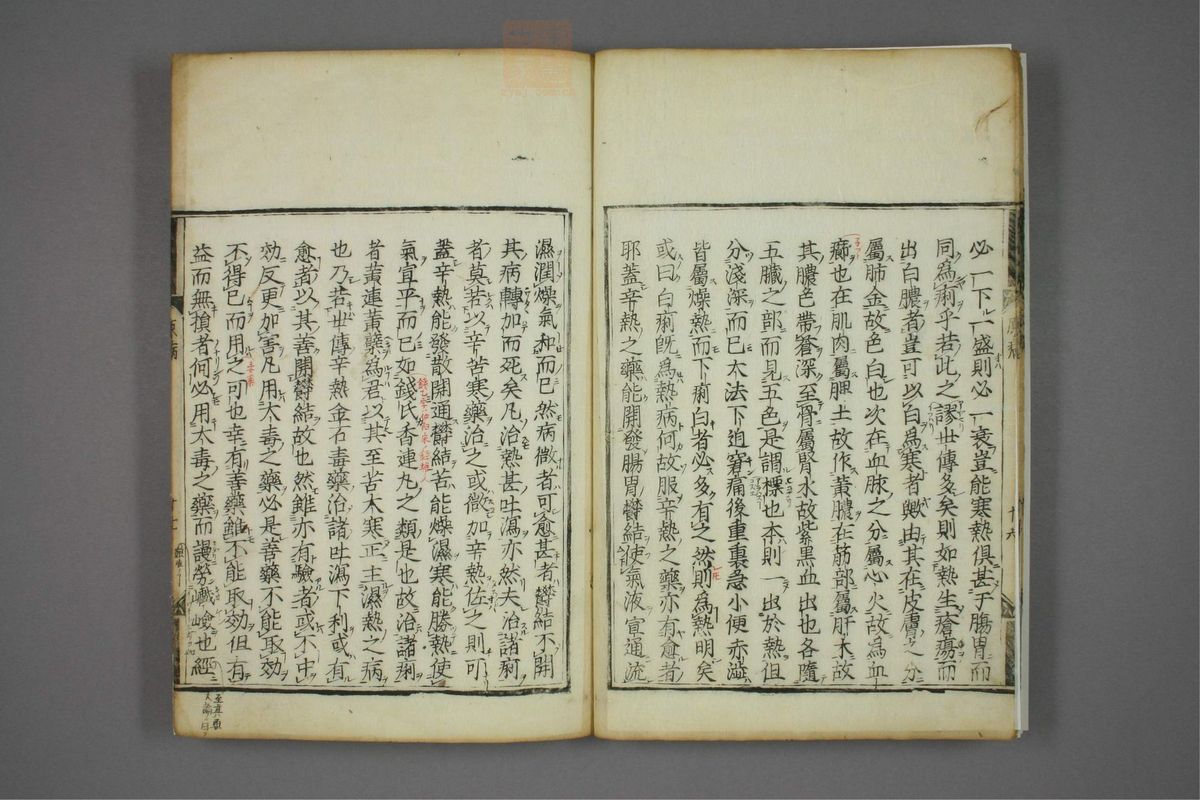 必一下一盛則必一衰豈能寒熱俱甚于腸胃而
同爲痢乎若此之謬世傳多矣則如熱生瘡瘍而
出白膿者豈可以白爲寒者歟由其在皮膚之分
屬肺金故色白也次在血脉之分屬心火故爲血
癤也在肌肉屬脾土故作黃膿在筋部屬肝木故
其膿色帶蒼深至骨屬腎水故紫黑血出也各隨
五臟之部而見五色是謂標也本則一出於熱但
分淺深而已大法下迫窘痛後重裏急小便赤澁
皆屬燥熱而下痢白者必多有之然則爲熱明矣
或曰白痢既爲熱病何故服辛熱之藥亦有愈者
耶蓋辛熱之藥能開發腸胃欝結使氣液宣通流
濕潤燥氣和而已然病微者可愈甚者欝結不開
其病轉加而死矣凡治熱甚吐瀉亦然夫治諸痢
者莫若以辛苦寒藥治之或微加辛熱佐之則可
蓋辛熱能發散開通欝結苦能燥濕寒能勝熱使
氣宜平而已如錢氏香連丸之類是也故治諸痢
者黃連黃蘗爲君以其至苦大寒正主濕熱之病
也乃若世傳辛熱金石毒藥治諸吐瀉下利或有
愈者以其善開欝結故也然雖亦有驗者或不中
効反更加害凡用大毒之藥必是善藥不能取効
不得已而用之可也幸有善藥雖不能取効但有
益而無損者何必用大毒之藥而謾勞嶮巇也經
原病
十六